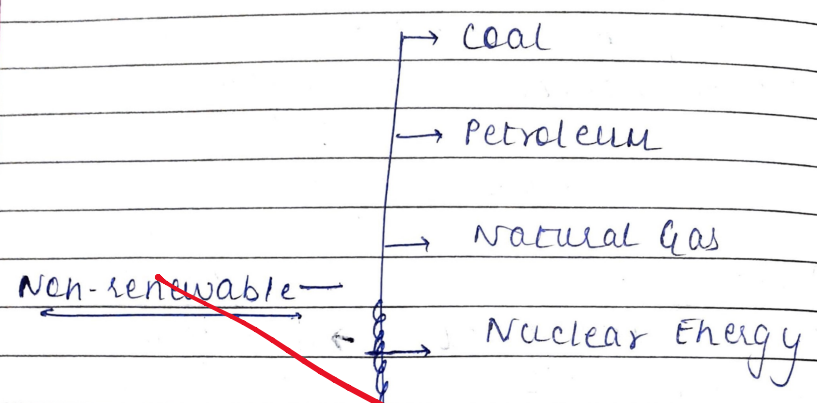 Coal
Petroleum
Natural Gas
Non-renewable
Nuclear Energy